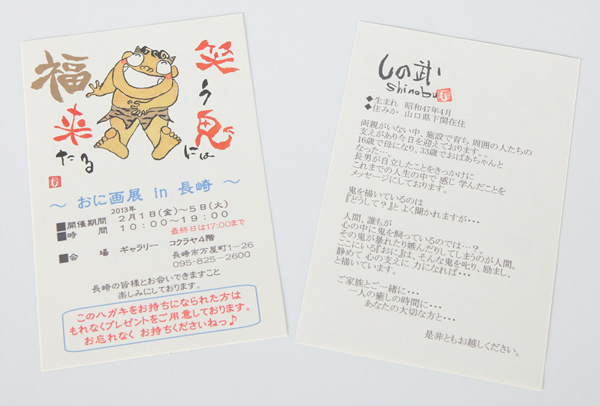 笑う鬼には
福来たる
～ おに画展 in 長崎 ～
2013年
■開催期間　2月1日(金)～5日(火)
■時　　間　10:00～19:00
最終日は17:00まで
■会　　場　ギャラリー　コクラヤ4階
長崎市万屋町1-26
095-825-2600
長崎の皆様とお会いできますこと
楽しみにしております。
このハガキをお持ちになられた方は
もれなくプレゼントをご用意しております。
お忘れなく お持ちくださいねっ♪
しの武
shinobu
◆生まれ　昭和47年4月
◆住みか　山口県下関在住
両親がいない中、施設で育ち 周囲の人たちの
支えがあり今日を迎えております。。
16歳で母になり、33歳でおばあちゃんと
なった…
長男が自立したことをきっかけに
これまでの人生の中で 感じ 学んだことを
メッセージにしております。
鬼を描いているのは
『どうして？』とよく聞かれますが・・・
人間、誰もが
心の中に鬼を飼っているのでは・・・？。
その鬼が暴れたり嫉んだりしてしまうのが人間。
ここにいる『おに』は、そんな鬼を叱り、励まし、
静めて 心の支えに 力になれば・・・
と描いています。
ご家族とご一緒に・・・
一人の癒しの時間に・・・
あなたの大切な方と・・・
是非ともお越しください。